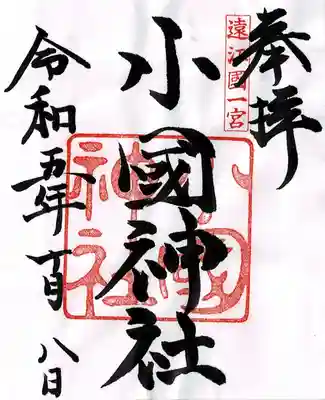 奉拝
遠江國一宮
小國神社
小國
神社
令和五年月八日